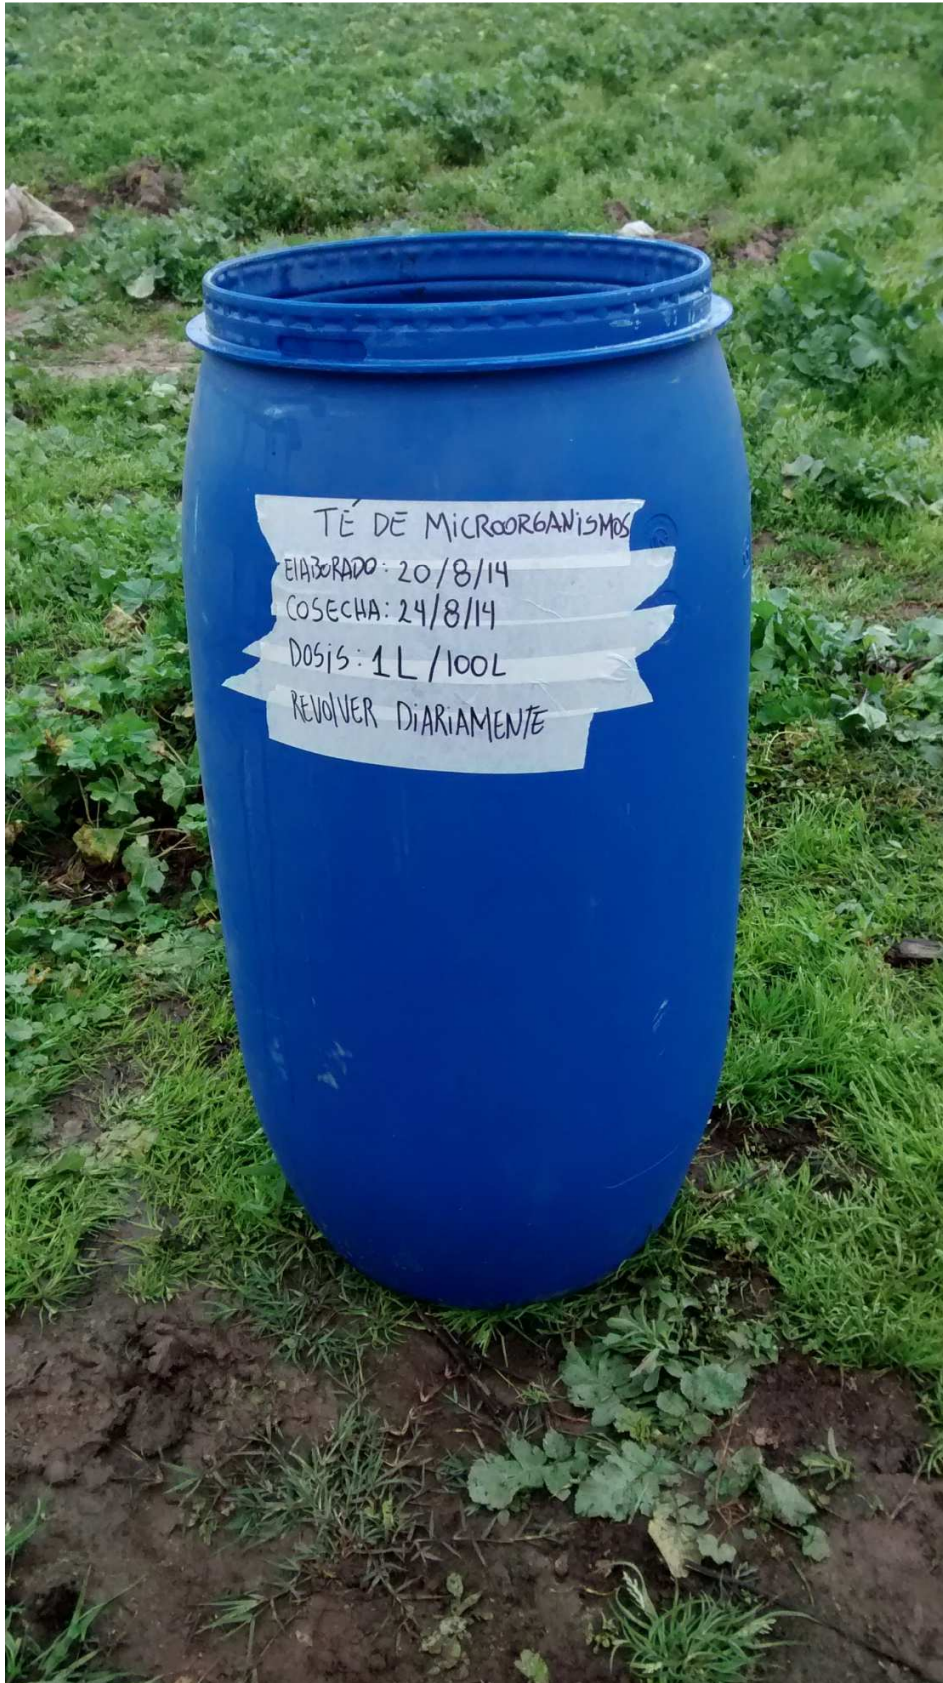 TÉ DE MICROORGANISMOS
ElABORADO: 20/8/14
COSECHA: 24/8/14
DOSIS: 1 L /100L
REVOlVER DIARIAMENTE